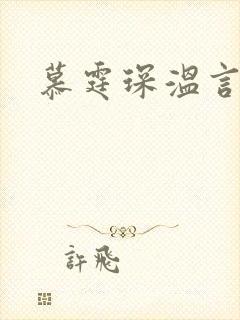 慕霆琛溫言
許飛